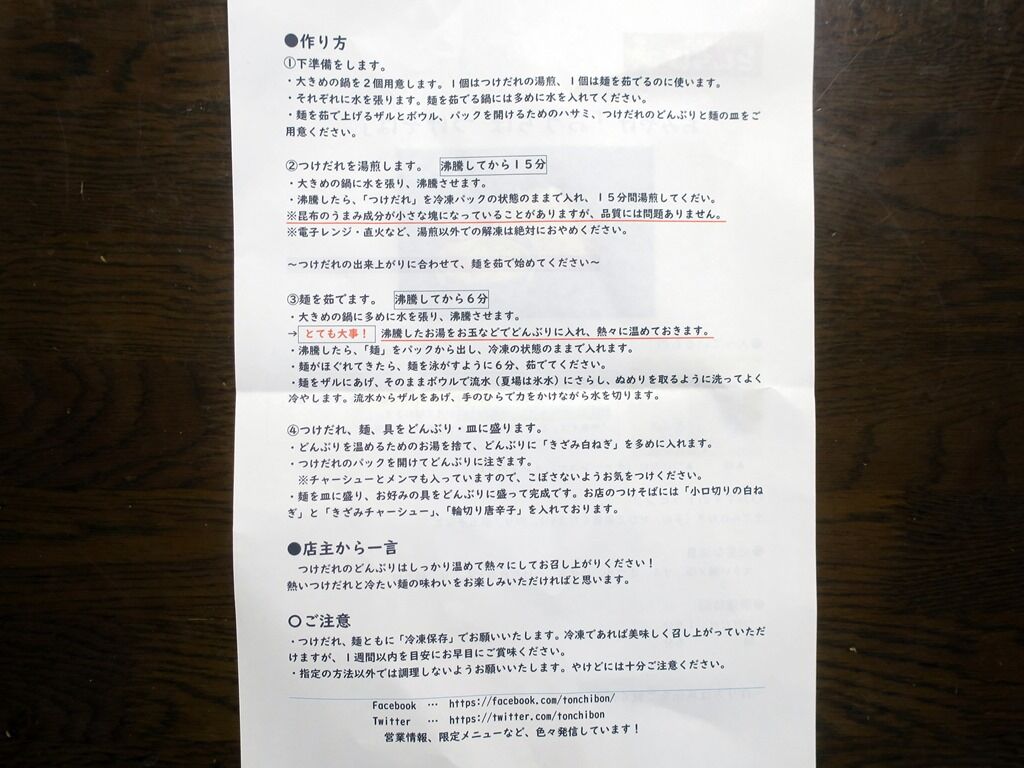 ●作り方
①下準備をします。
・大きめの鍋を２個用意します。１個はつけだれの湯煎、１個は麺を茹でるのに使います。
・それぞれに水を張ります。麺を茹でる鍋には多めに水を入れてください。
・麺を茹で上げるザルとボウル、パックを開けるためのハサミ、つけだれのどんぶりと麺の皿をご
用意ください。
②つけだれを湯煎します。 沸騰してから１５分
・大きめの鍋に水を張り、沸騰させます。
・沸騰したら、「つけだれ」を冷凍パックの状態のままで入れ、１５分間湯煎してくだい。
※昆布のうまみ成分が小さな塊になっていることがありますが、品質には問題ありません。
※電子レンジ・直火など、湯煎以外での解凍は絶対におやめください。
～つけだれの出来上がりに合わせて、麺を茹で始めてください～
③麺を茹でます。 沸騰してから６分
・大きめの鍋に多めに水を張り、沸騰させます。
→ とても大事！ 沸騰したお湯をお玉などでどんぶりに入れ、熱々に温めておきます。
・沸騰したら、「麺」をパックから出し、冷凍の状態のままで入れます。
・麺がほぐれてきたら、麺を泳がすように６分、茹でてください。
・麺をザルにあげ、そのままボウルで流水（夏場は氷水）にさらし、ぬめりを取るように洗ってよく
冷やします。流水からザルをあげ、手のひらで力をかけながら水を切ります。
④つけだれ、麺、具をどんぶり・皿に盛ります。
・どんぶりを温めるためのお湯を捨て、どんぶりに「きざみ白ねぎ」を多めに入れます。
・つけだれのパックを開けてどんぶりに注ぎます。
※チャーシューとメンマも入っていますので、こぼさないようお気をつけください。
・麺を皿に盛り、お好みの具をどんぶりに盛って完成です。お店のつけそばには「小口切りの白ね
ぎ」と「きざみチャーシュー」、「輪切り唐辛子」を入れております。
●店主から一言
つけだれのどんぶりはしっかり温めて熱々にしてお召し上がりください！
熱いつけだれと冷たい麺の味わいをお楽しみいただければと思います。
○ご注意
・つけだれ、麺ともに「冷凍保存」でお願いいたします。冷凍であれば美味しく召し上がっていただ
けますが、１週間以内を目安にお早目にご賞味ください。
・指定の方法以外では調理しないようお願いいたします。やけどには十分ご注意ください。
Facebook … https://facebook.com/tonchibon/
Twitter … https://twitter.com/tonchibon
営業情報、限定メニューなど、色々発信しています！